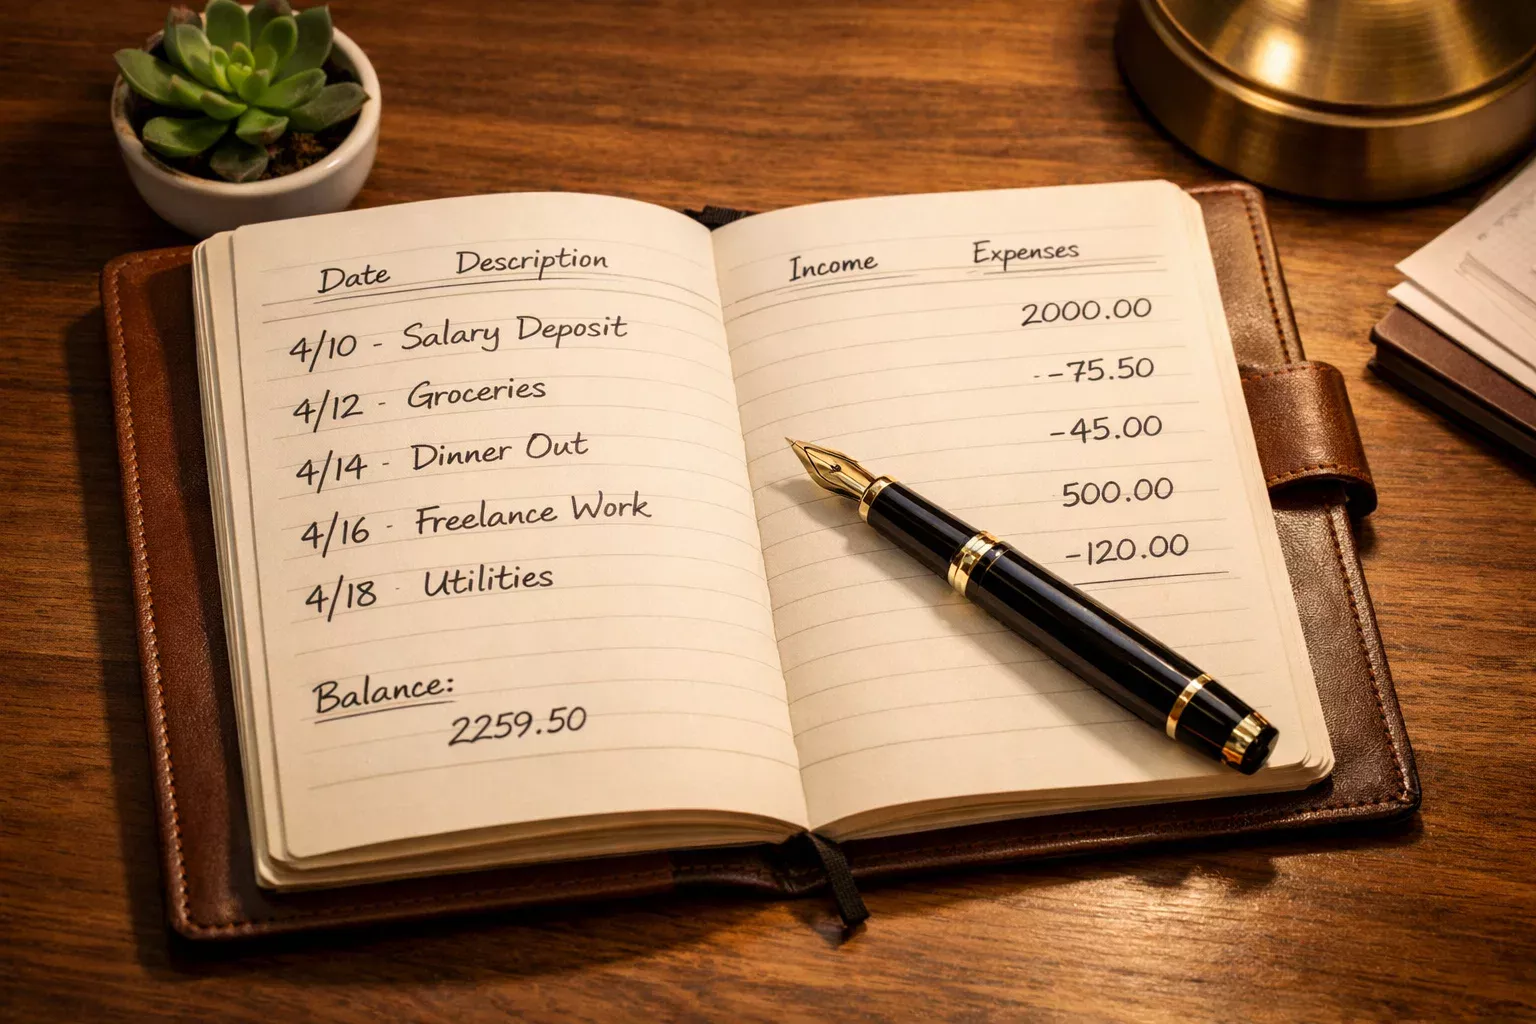 Date Description Income Expenses
4/10 - Salary Deposit 2000.00
4/12 - Groceries --75.50
4/14 - Dinner Out -45.00
4/16 - Freelance Work 500.00
4/18 - Utilities -120.00
Balance:
2259.50